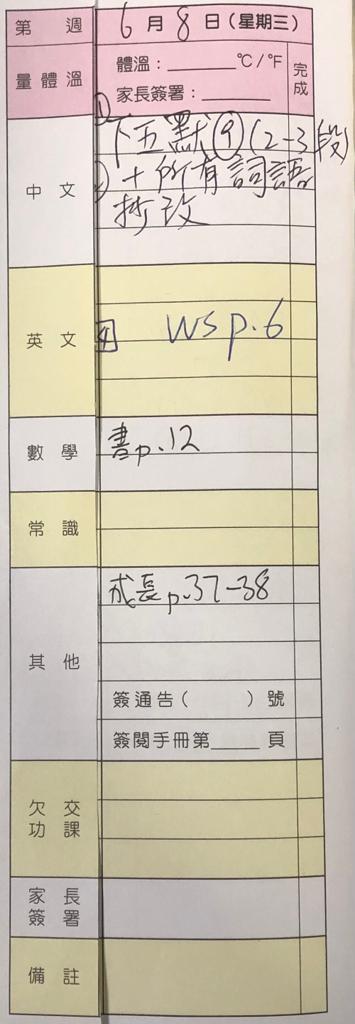 第 週 6月8日(星期三)
量體溫
體溫：______°C/°F
家長簽署：______
完成
中文
① 下五默⑨(2-3段)
② 十所有詞語
抄改
英文
④ WS p.6
數學
書p.12
常識
其他
成長p.37-38
簽通告( )號
簽閱手冊第____頁
欠交
功課
家長
簽署
備註